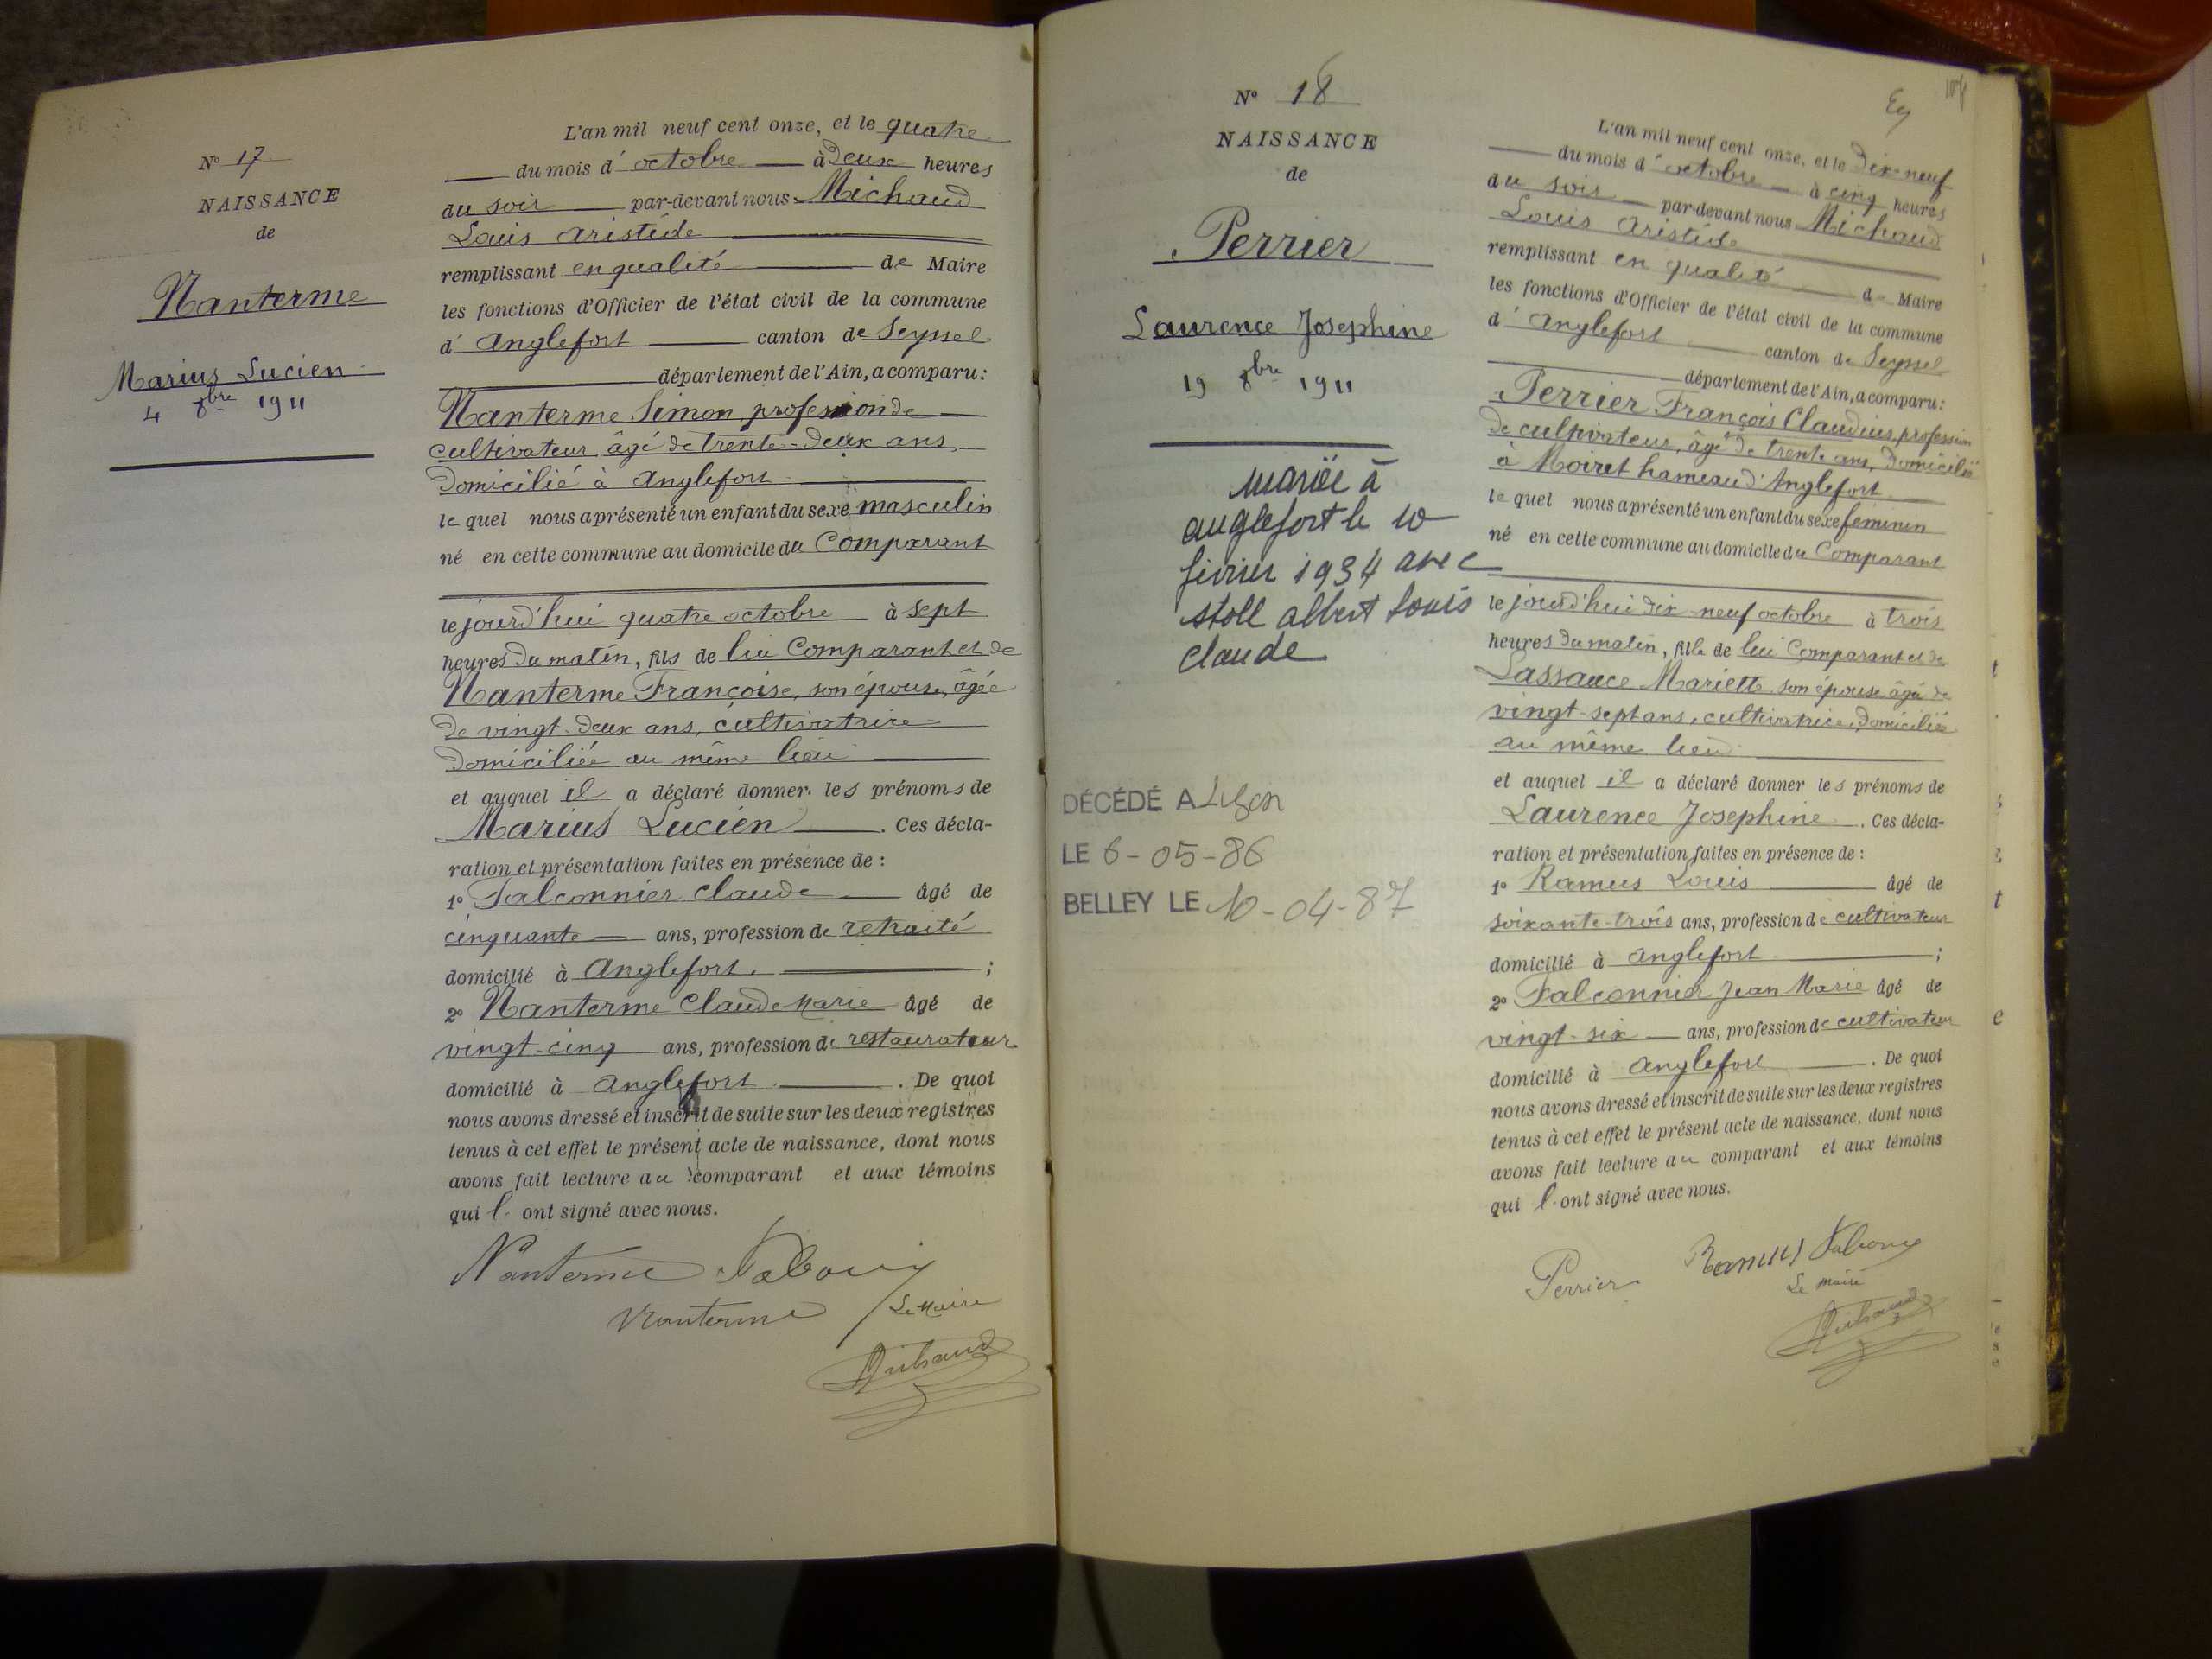 N° 17
NAISSANCE
de
Nanterme
Marius Lucien
4 8bre 1911
L'an mil neuf cent onze, et le quatre
du mois d' octobre à deux heures
du soir par-devant nous Michaud
Louis Aristide
remplissant en qualité de Maire
les fonctions d'Officier de l'état civil de la commune
d' Anglefort canton de Seyssel
département de l'Ain, a comparu:
Nanterme Simon, profession de
cultivateur, âgé de trente-deux ans,
domicilié à Anglefort
lequel nous a présenté un enfant du sexe masculin
né en cette commune au domicile du Comparant
le jourd'hui quatre octobre à sept
heures du matin, fils de lui Comparant et de
Nanterme Françoise, son épouse, âgée
de vingt-deux ans, cultivatrice
domiciliée au même lieu
et auquel il a déclaré donner les prénoms de
Marius Lucien. Ces décla-
ration et présentation faites en présence de :
1° Falconnier Claude âgé de
cinquante ans, profession de retraité
domicilié à Anglefort. ;
2° Nanterme Claude Marie âgé de
vingt-cinq ans, profession de restaurateur
domicilié à Anglefort. De quoi
nous avons dressé et inscrit de suite sur les deux registres
tenus à cet effet le présent acte de naissance, dont nous
avons fait lecture au comparant et aux témoins
qui l' ont signé avec nous.
Nanterme
Nanterme Le Maire
Michaud
N° 18
NAISSANCE
de
Perrier
Laurence Josephine
19 8bre 1911
mariée à
anglefort le 10
février 1934 avec
stoll albert Louis
claude
DÉCÉDÉ A Lyon
LE 6-05-86
BELLEY LE 10-04-87
L'an mil neuf cent onze, et le dix-neuf
du mois d' octobre à cinq heures
du soir par-devant nous Michaud
Louis Aristide
remplissant en qualité de Maire
les fonctions d'Officier de l'état civil de la commune
d' Anglefort canton de Seyssel
département de l'Ain, a comparu:
Perrier François Claudius, profession
de cultivateur, âgé de trente ans, domicilié
à Moiret hameau d'Anglefort
lequel nous a présenté un enfant du sexe feminin
né en cette commune au domicile du Comparant
le jourd'hui dix-neuf octobre à trois
heures du matin, fille de lui Comparant et de
Lassauce Mariette son épouse âgée de
vingt-sept ans, cultivatrice, domiciliée
au même lieu
et auquel il a déclaré donner les prénoms de
Laurence Josephine. Ces décla-
ration et présentation faites en présence de :
1° Ramus Louis âgé de
soixante-trois ans, profession de cultivateur
domicilié à Anglefort ;
2° Falconnier Jean Marie âgé de
vingt-six ans, profession de cultivateur
domicilié à Anglefort. De quoi
nous avons dressé et inscrit de suite sur les deux registres
tenus à cet effet le présent acte de naissance, dont nous
avons fait lecture au comparant et aux témoins
qui l' ont signé avec nous.
Perrier Ramus
Le Maire
Michaud